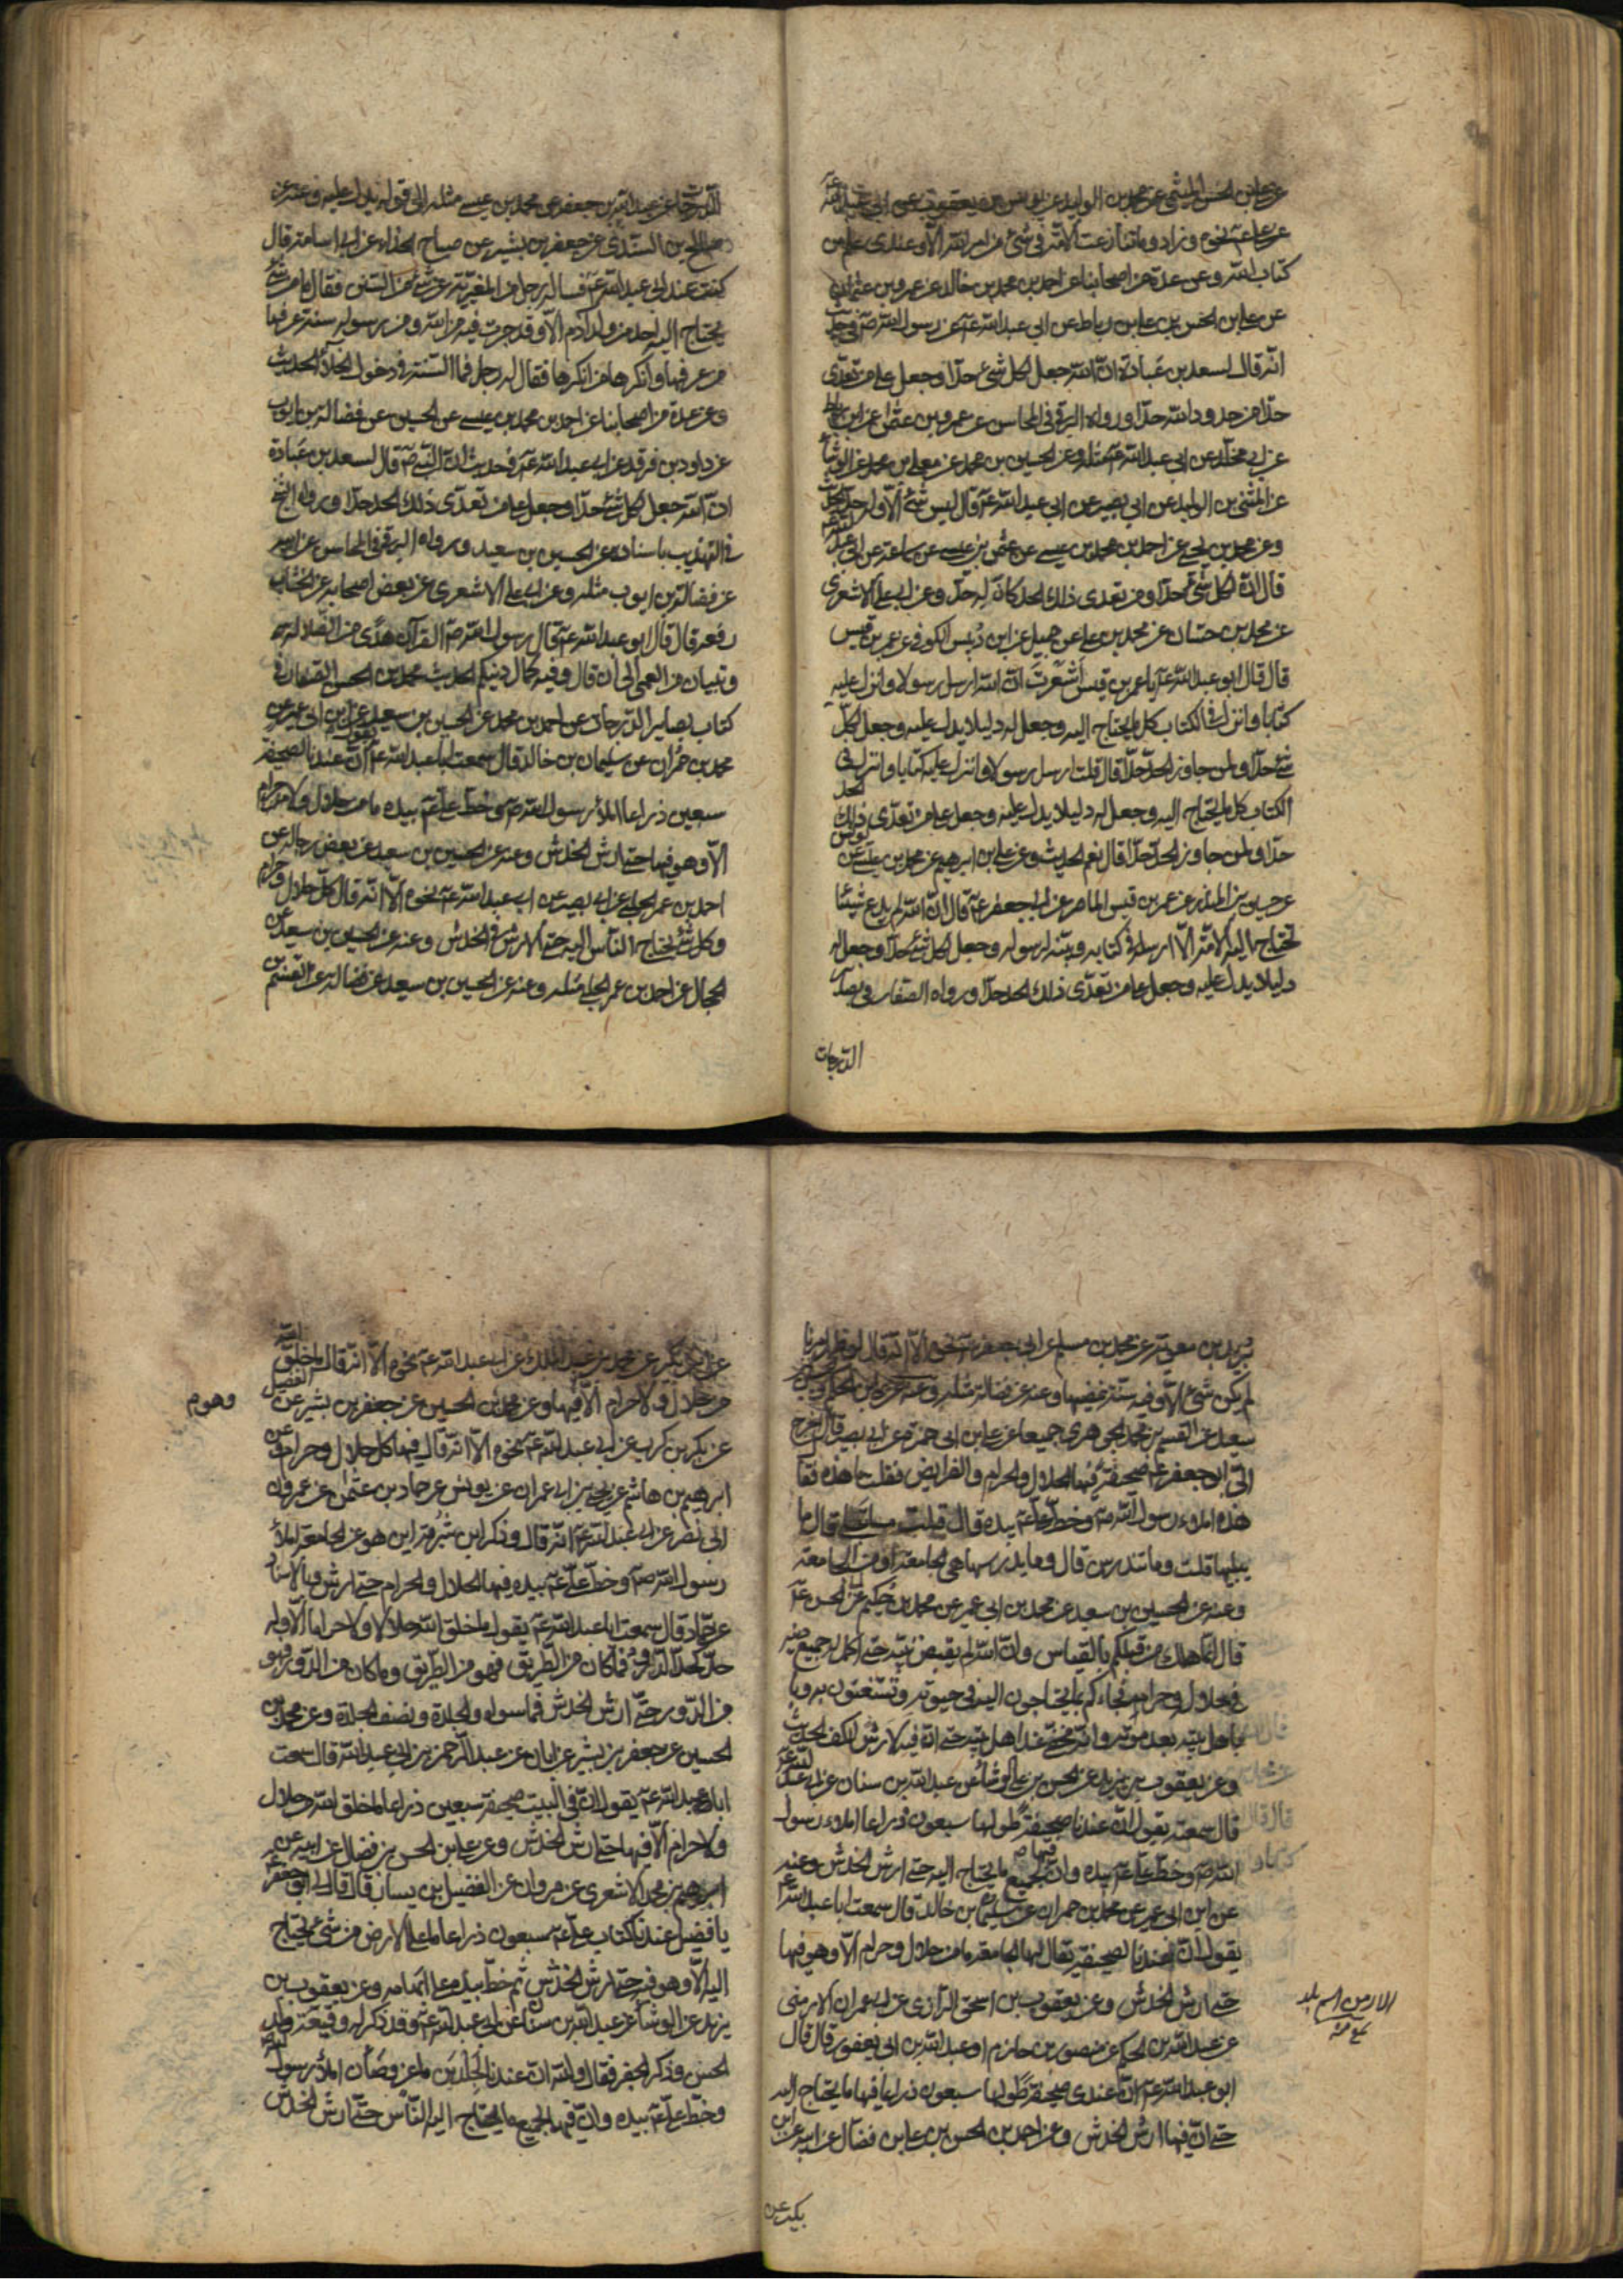 عن علي بن الحسن الميثمي عن محمد بن الوليد عن يونس بن يعقوب عن ابي عبد الله
عن علي عۤ نحوه وزاد وما تنازعت الامة في شئ من امر الله الا وعندي علم من
كتاب الله وعن عدة من اصحابنا عن احمد بن محمد بن خالد عن عمرو بن عثمان
عن علي بن الحسن بن علي بن رباط عن ابي عبد الله عۤ عن رسول الله صۤ في
انه قال لسعد بن عبادة انّ الله جعل لكل شئ حدّا وجعل على من تعدّى
حدّا من حدود الله حدّا ورواه البرقي في المحاسن عن عمرو بن عثمان عن ابن رباط
عن ابي مخلد عن ابي عبد الله عۤ مثله وعن الحسين بن محمد عن معلى بن محمد عن الوشا
عن المثنى بن الوليد عن ابي بصير عن ابي عبد الله عۤ قال ليس شئ الّا وله حدّ
وعن محمد بن يحيى عن احمد بن محمد بن عيسى عن عثمن بن عيسى عن سماعة عن ابي عبد الله عۤ
قال انّ لكل شئ حدّا ومن تعدى ذلك الحد كان له حدّ وعن ابي علي الاشعري
عن محمد بن حسّان عن محمد بن علي عن جميل عن ابن دُبيس الكوفي عن عمر بن قيس
قال قال ابو عبد الله عۤ يا عمر بن قيس أشَعرتَ انّ الله ارسل رسولا وانزل عليه
كتابا وانزل في الكتاب كل ما يحتاج اليه وجعل له دليلا يدل عليه وجعل لكلّ
شئ حدّا ولمن جاوز الحدّ حدّا قال قلت ارسل رسولا وانزل عليه كتابا وانزل في
الكتاب كل ما يحتاج اليه وجعل له دليلا يدل عليه وجعل على من تعدّى ذلك الحد
حدّا ولمن جاوز الحدّ حدّا قال نعم الحديث وعن علي بن ابرهيم عن محمد بن عيسى عن يونس
عن حسين بن المنذر عن عمر بن قيس الماصر عن ابي جعفر عۤ قال انّ الله لم يدع شيئا
تحتاج اليه الامّة الّا انزله في كتابه وبيّنه لرسوله وجعل لكل شئ حدّا وجعل له
دليلا يدل عليه وجعل على من تعدّى ذلك الحد حدّا ورواه الصفار في بصاير
الدّرجات
الدّرجات عن عبد الله بن جعفر عن محمد بن عيسى مثله الى قوله يدل عليه وعنه عن
صالح بن السّندي عن جعفر بن بشير عن صباح الحذاء عن ابي اسامة قال
كنت عند ابي عبد الله عۤ فساله رجل من المغيرية عن شئ من السنن فقال ما من شئ
يحتاج اليه احد من ولد آدم الّا وقد جرت فيه من الله ومن رسوله سنة عرفها
من عرفها وانكرها من انكرها فقال له رجل فما السّنة في دخول الخلأ الحديث
وعن عدة من اصحابنا عن احمد بن محمد بن عيسى عن الحسين عن فضالة بن ايوب
عن داود بن فرقد عن ابي عبد الله عۤ في حديث انّ النّبي صۤ قال لسعد بن عبادة
انّ الله جعل لكل شئ حدّا وجعل على من تعدّى ذلك الحد حدّا ورواه الشيخ
في التهذيب باسناده عن الحسين بن سعيد ورواه البرقي في المحاسن عن ابيه
عن فضالة بن ايوب مثله وعن ابي علي الاشعري عن بعض اصحابه عن الخشاب
رفعه قال قال ابو عبد الله عۤ قال رسول الله صۤ القرآن هدًى من الضّلالة
وتبيان من العمى الى ان قال وفيه كمال دينكم الحديث محمد بن الحسن الصفار في
كتاب بصاير الدّرجات عن احمد بن محمد عن الحسين بن سعيد عن ابن ابي عمير عن
محمد بن حمران عن سليمان بن خالد قال سمعت ابا عبد الله عۤ يقول انّ عندنا لصحيفة
سبعين ذراعا املأ رسول الله صۤ وخطّ عليّ عۤ بيده ما من حلال ولا حرام
الّا وهو فيها حتى ارش الخدش وعنه عن الحسين بن سعيد عن بعض رجاله عن
احمد بن عمر الحلبي عن ابي بصير عن ابي عبد الله عۤ نحوه الّا انّه قال كلّ حلال وحرام
وكل شئ يحتاج النّاس اليه حتى الارش في الخدش وعنه عن الحسين بن سعيد عن
الحجال عن احمد بن عمر الحلبي مثله وعنه عن الحسين بن سعيد عن فضالة عن القسم بن
بريد بن معوية عن محمد بن مسلم عن ابي جعفر عۤ نحوه الّا انّه قال
لم يكن شئ الّا وفيه سنّة نمضيها وعنه عن فضالة مثله وعنه
سعيد عن القسم بن محمد الجوهري جميعا عن علي بن ابي حمزة عن ابي بصير قال اخرج
اليّ ابو جعفر عۤ صحيفة فيها الحلال والحرام والفرايض فقلت ما هذه فقا
هذه املاء رسول الله صۤ وخطّ عليّ عۤ بيده قال قلت قال ما
يبليها قلت وما تندرس قال وما يدرسها هي الجامعة او من الجامعة
وعنه عن الحسين بن سعيد عن محمد بن ابي عمير عن محمد بن حُكيم عن ابي الحسن عۤ
قال انّما هلك من قبلكم بالقياس وانّ الله لم يقبض نبيّه حتى اكمل له جميع دينه
في حلاله وحرامه فجاءكم بما تحتاجون اليه في حيوته وتستغنون به وبا
باهل بيته بعد موته وانّه مخبيّ عند اهل بيته حتى انّ فيه لارش الكف الحديث
وعن يعقوب بن يزيد عن الحسن بن علي الوشا عن عبد الله بن سنان عن ابي عبد الله عۤ
قال سمعته يقول انّ عندنا صحيفة طولها سبعون ذراعا املاء رسول
الله صۤ وخطّ عليّ عۤ بيده وانّ فيها لجميع ما يحتاج اليه حتى ارش الخدش وعنه
عن ابن ابي عمير عن محمد بن حمران عن سليمان بن خالد قال سمعت ابا عبد الله عۤ
يقول انّ عندنا لصحيفة يقال لها الجامعة ما من حلال وحرام الّا وهو فيها
حتى ارش الخدش وعن يعقوب بن اسحق الرّازي عن ابي عمران الارمني
عن عبد الله بن الحكم عن منصور بن حازم او عبد الله بن ابي يعفور قال قال
ابو عبد الله عۤ انّ عندي صحيفة طولها سبعون ذراعا فيها ما يحتاج اليه
حتى انّ فيها ارش الخدش وعن احمد بن الحسن بن علي بن فضال عن ابيه عن ابن
بكير عن
عن ابن بكير عن محمد بن عبد الملك عن ابي عبد الله عۤ نحوه الّا انّه قال ما خلق الله
من حلال ولا حرام الّا فيها وعن محمد بن الحسين عن جعفر بن بشير عن الفضيل
وهوم
عن بكر بن كرب عن ابي عبد الله عۤ نحوه الّا انّه قال فيها كل حلال وحرام وعن
ابرهيم بن هاشم عن يحيى بن ابي عمران عن يونس عن حماد بن عثمن عن عمرو بن
ابي نصر عن ابي عبد الله عۤ انّه قال وذكر ابن شبرمة اين هو عن الجامعة املأ
رسول الله صۤ وخطّ عليّ عۤ بيده فيها الحلال والحرام حتى ارش وبالاسناد
عن حماد قال سمعت ابا عبد الله عۤ يقول ما خلق الله حلالا ولا حراما الّا وله
حدّ كحدّ الدّور فما كان من الطّريق فهو من الطّريق وما كان من الدّور فهو
من الدّور حتّى ارش الخدش فما سواه والجلدة ونصف الجلدة وعن محمد بن
الحسين عن جعفر بن بشير عن ابان عن عبد الرّحمن بن ابي عبد الله قال سمعت
ابا عبد الله عۤ يقول انّ في البيت صحيفة سبعين ذراعا ما خلق الله من حلال
ولا حرام الّا فيها حتى ارش الخدش وعن علي بن الحسن بن فضال عن ابيه عن
ابرهيم بن محمد الاشعري عن مروان عن الفضيل بن يسار قال قال لي ابو جعفر عۤ
يا فضيل عندنا كتاب عليّ عۤ سبعون ذراعا ما على الارض من شئ يحتاج
اليه الّا وهو فيه حتى ارش الخدش ثم خطّ بيده على ابهامه وعن يعقوب بن
يزيد عن الوشا عن عبد الله بن سنان عن ابي عبد الله عۤ وقد ذكر له وقيعة ولد
الحسن وذكر الجفر فقال والله انّ عندنا لجلدَين ماعز وضأن املأ رسول الله صۤ
وخطّ عليّ عۤ بيده وانّ فيها لجميع ما يحتاج اليه النّاس حتّى ارش الخدش